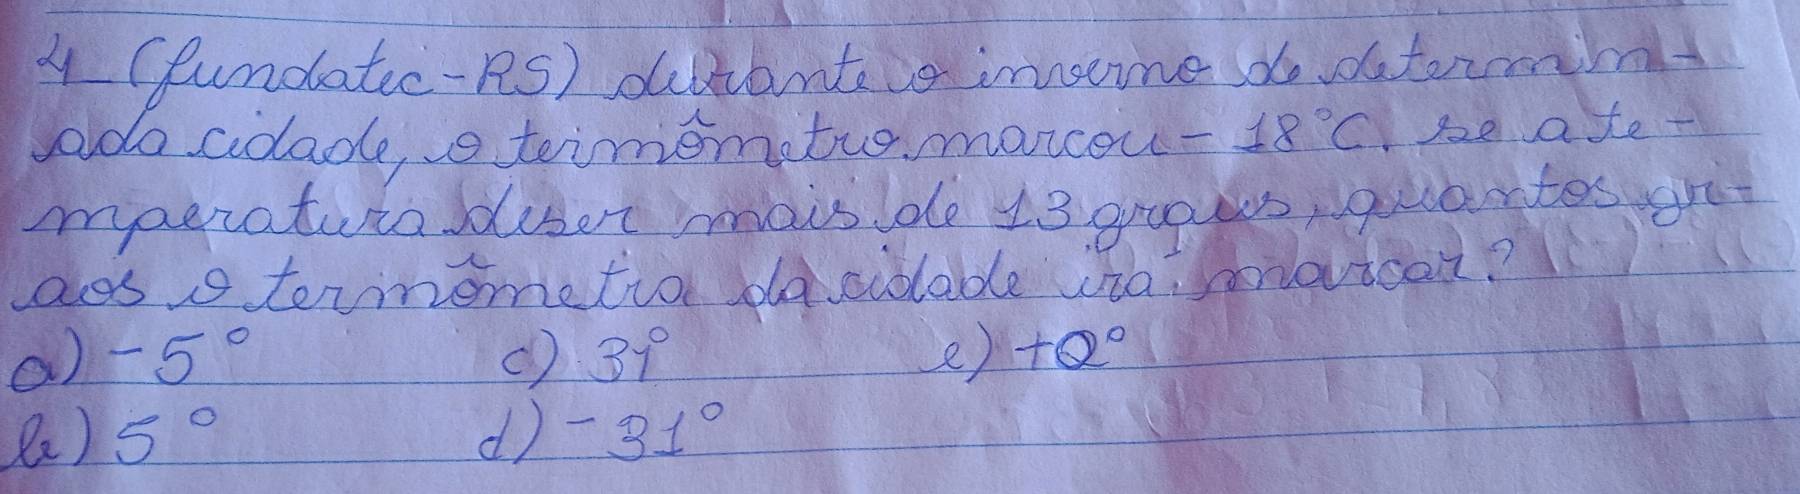 4 - (fundatec - RS) durante o inverno de determin-
ada cidade, o termômetro marcou - 18°C. se a te-
mperatura diser mais de 13 graus, quantos gr-
aos o termômetro da cidade irá marcar?
a) -5° c) 31° e) +0°
b) 5° d) -31°